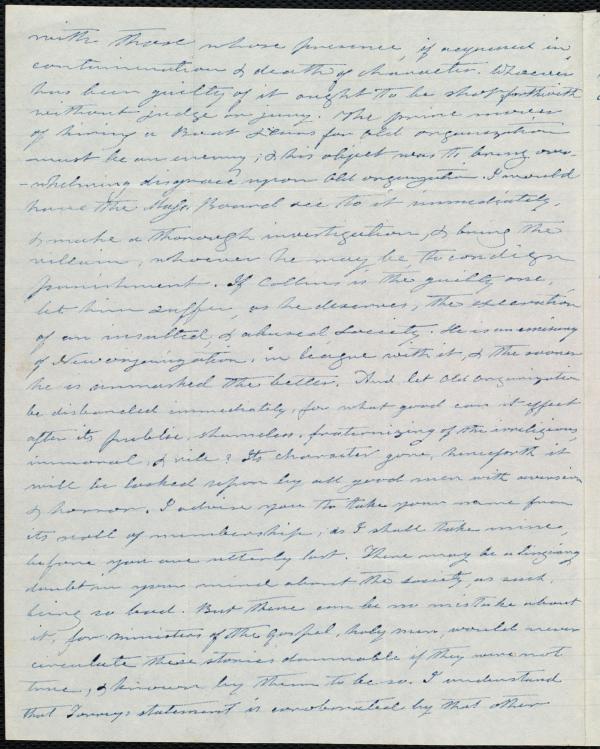 with those whose presence, if acquiesced in,
contamination & death of character. Whoever
has been guilty of it ought to be shot forthwith
without judge or jury. The prime mover
of hiring a Boat & Cars for Old organization
must be an enemy; & his object was to bring over-
-whelming disgrace upon Old organization. I would
have the Mass. Board see to it immediately,
& make a thorough investigation, & bring the
villain, whoever he may be, to condign
punishment. If Collins is the guilty one,
let him suffer, as he deserves, the execration
of an insulted, & abused Society. He is an emissary
of New organization, in league with it, & the sooner
he is unmasked the better. And let Old Organization
be disbanded immediately, for what good can it effect
after its public, shameless, fraternizing of the irreligious,
immoral, & vile? Its character gone, henceforth it
will be looked upon by all good men with aversion
& horror. I advise you to take your name from
its roll of membership; as I shall take mine,
before you are utterly lost. There may be a lingering
doubt in your mind about the society, as such,
being so bad. But there can be no mistake about
it, for ministers of the Gospel, holy men, would never
circulate these stories damnable if they were not
true, & known by them to be so. I understand
that Torrey's statement is corroborated by that other